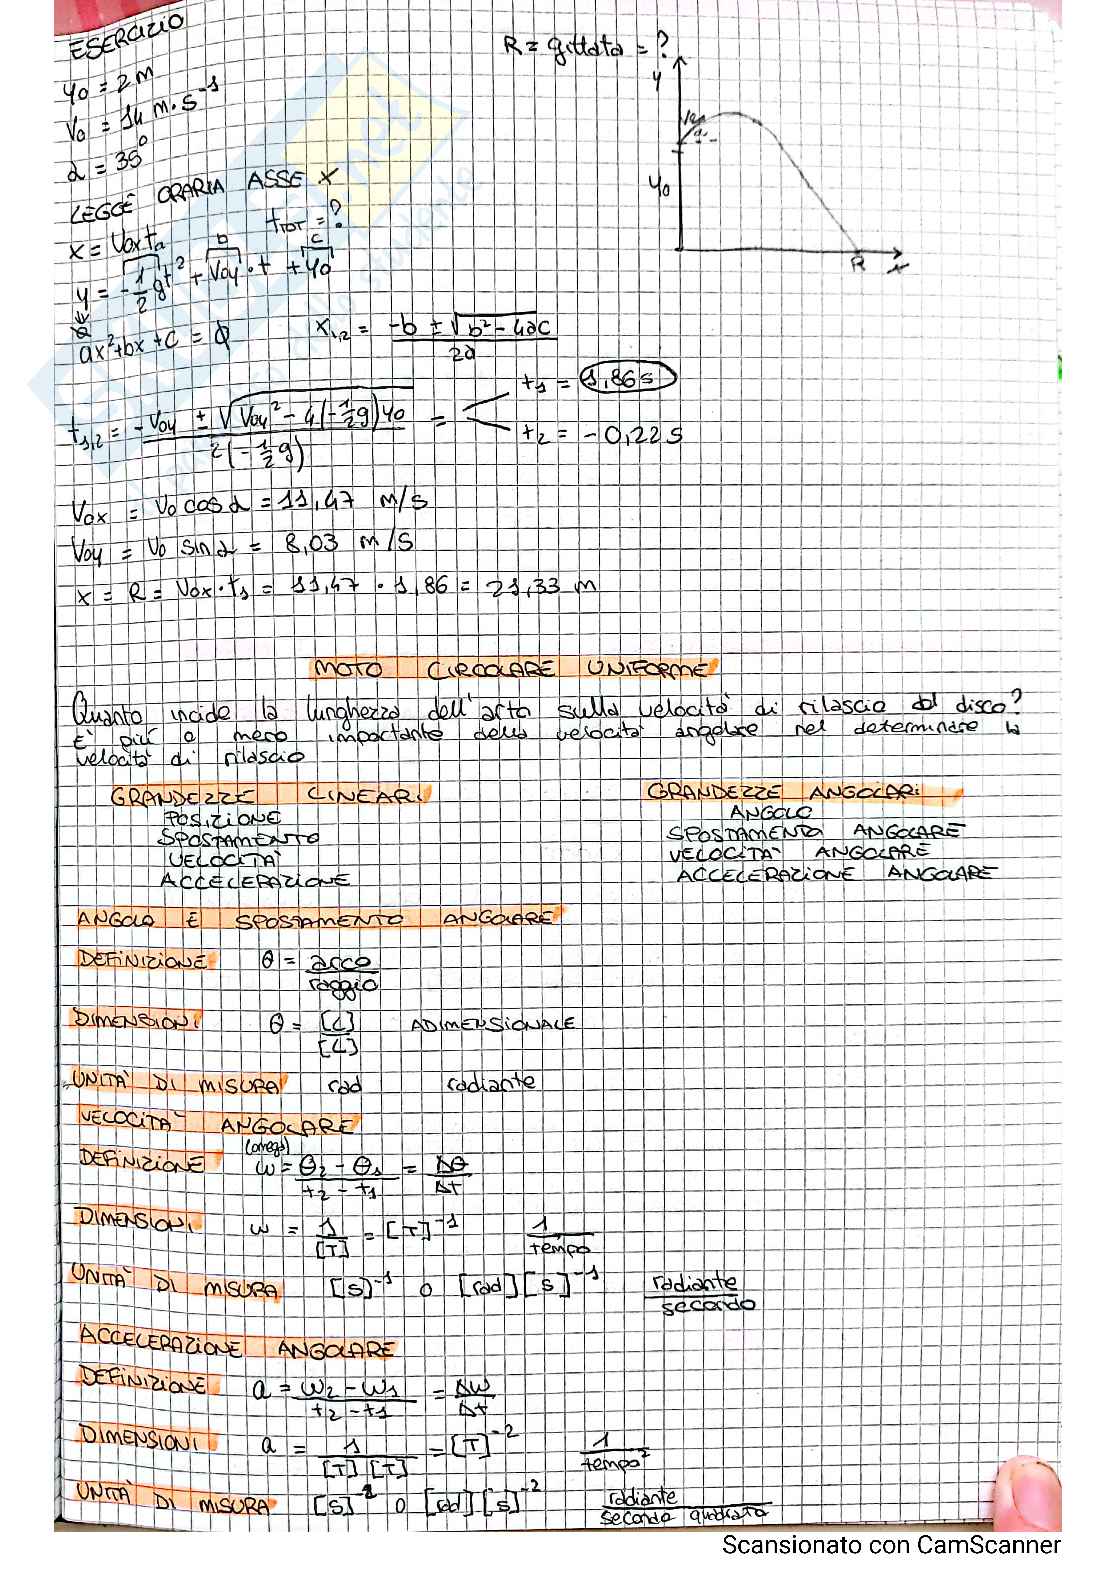 ESERCIZIO
R = gittata = ?
y0 = 2 m
V0 = 14 m·s⁻¹
α = 35°
LEGGE ORARIA ASSE X
x = V0x t
tTOT = ?
y = -1/2 g t² + V0y · t + y0
a b c
ax² + bx + c = 0
x1,2 = (-b ± √(b² - 4ac)) / 2a
t1,2 = (-V0y ± √(V0y² - 4(-1/2 g) y0)) / 2(-1/2 g) =
t1 = 1,86 s
t2 = -0,22 s
V0x = V0 cos α = 11,47 m/s
V0y = V0 sin α = 8,03 m/s
x = R = V0x · t1 = 11,47 · 1,86 = 21,33 m
y
V0
α
y0
R
x
MOTO CIRCOLARE UNIFORME
Quanto incide la lunghezza dell'arto sulla velocità di rilascio del disco?
È più o meno importante della velocità angolare nel determinare la
velocità di rilascio
GRANDEZZE LINEARI
POSIZIONE
SPOSTAMENTO
VELOCITÀ
ACCELERAZIONE
GRANDEZZE ANGOLARI
ANGOLO
SPOSTAMENTO ANGOLARE
VELOCITÀ ANGOLARE
ACCELERAZIONE ANGOLARE
ANGOLO E SPOSTAMENTO ANGOLARE
DEFINIZIONE θ = arco / raggio
DIMENSIONI θ = [L] / [L] ADIMENSIONALE
UNITÀ DI MISURA rad radiante
VELOCITÀ ANGOLARE
(omega)
DEFINIZIONE ω = (θ2 - θ1) / (t2 - t1) = Δθ / Δt
DIMENSIONI ω = 1 / [T] = [T]⁻¹ 1 / tempo
UNITÀ DI MISURA [s]⁻¹ o [rad][s]⁻¹ radiante / secondo
ACCELERAZIONE ANGOLARE
DEFINIZIONE a = (ω2 - ω1) / (t2 - t1) = Δω / Δt
DIMENSIONI a = 1 / [T][T] = [T]⁻² 1 / tempo²
UNITÀ DI MISURA [s]⁻² o [rad][s]⁻² radiante / secondo quadrato
Scansionato con CamScanner